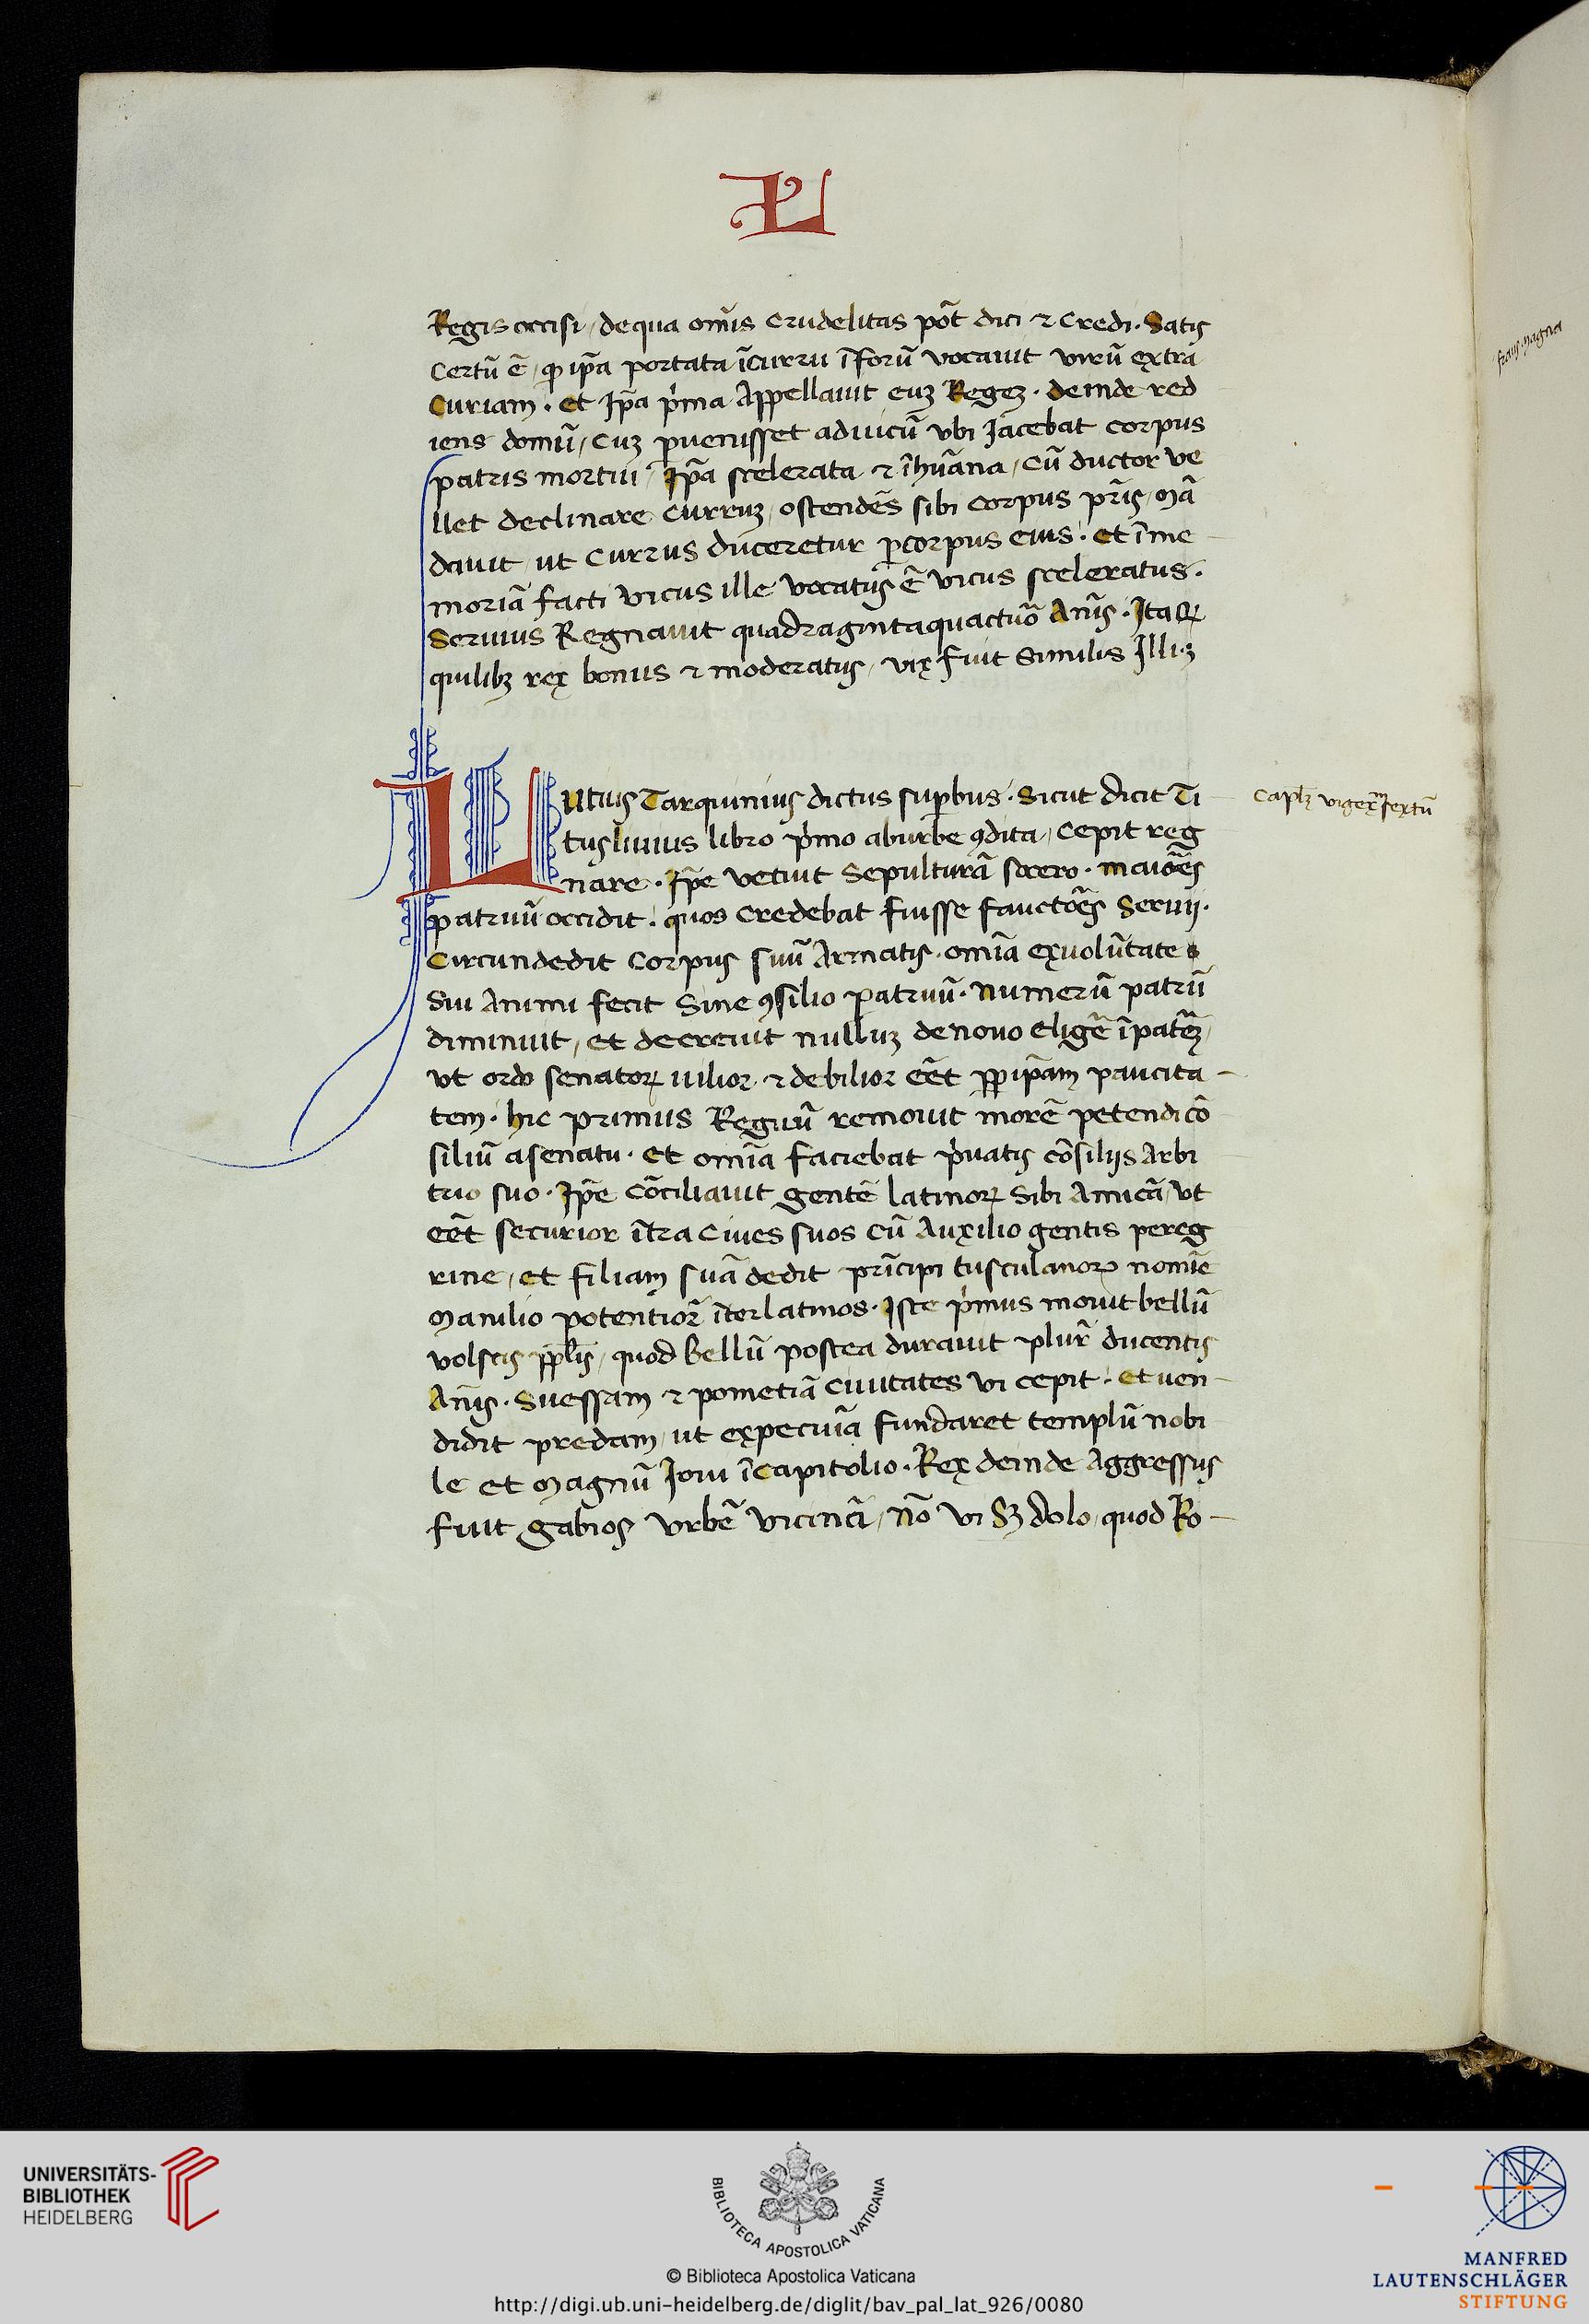 L
Regis occisi, dequa om̄is crudelitas pōt dici ⁊ credi. Satis
Certū ē, ꝙ ip̄a portata īcurru īforū vocauit virū extra
Curiam. et Ip̄a p̓ma Appellauit euꝫ Regeꝫ. deinde red
iens domū, Cuꝫ ꝑuenisset aduicū vbi Jacebat corpus
patris mortui, Ip̄a scelerata ⁊ īhūana, Cū ductor ve
llet declinare Curruꝫ, ostendēs sibi Corpus pr̄is, Mā
dauit, ut Currus duceretur ꝑcorpus eius. et īme
moriā facti vicus ille vocatus ē vicus sceleratus.
Seruius Regnauit quadragintaquactuō Anīs. Itaqꝫ
quilibꝫ rex bonus ⁊ moderatus, vix fuit Similis Illi.ꝫ
Lutius Tarquinius dictus suꝑbus. Sicut dicit Ti
tusliuius libro p̓mo aburbe ꝯdita, Cepit reg
nare. Ip̄e vetuit Sepulturā socero. maiōēs
patruū occidit. quos Credebat fuisse fauctōēs Seruij.
Circundedit Corpus suū Armatis. om̄ia exvolūtate
Sui Animi fecit Sine ꝯsilio patruū. Numerū patrū
diminuit, et decreuit nulluꝫ denouo Eligē īpatrēꝫ,
vt ordo senatoꝝ uilior ⁊ debilior eēt ꝓpip̄am paucita
tem. hic primus Reguū remouit morē petendi cō
siliū asenatu. et om̄ia faciebat p̓uatis cōsilijs Arbi
trio suo. Ip̄e Cōciliauit gentē latinoꝝ Sibi Amicā, vt
eēt securior ītra Ciues suos Cū Auxilio gentis pereg
rine, et filiam suā dedit prīcipi tusculanoꝝ nomīe
Manilio potentior̄ īterlatinos. Iste p̓mus mouit bellū
volscis ppl̄is, quod bellū postea durauit plur̄ ducentis
Anīs. Suessam ⁊ pometiā Ciuitates vi cepit. et uen
didit predam, ut expecuīa fundaret templū nobi
le et Magnū Ioui īCapitolio. Rex deinde Aggressus
fuit gabios vrbē vicinā, nō vi Sꝫ dolo, quod Ro
Caplꝫ vigexᵐ sextū
UNIVERSITÄTS-
BIBLIOTHEK
HEIDELBERG
BIBLIOTECA APOSTOLICA VATICANA
© Biblioteca Apostolica Vaticana
http://digi.ub.uni-heidelberg.de/diglit/bav_pal_lat_926/0080
MANFRED
LAUTENSCHLÄGER
STIFTUNG